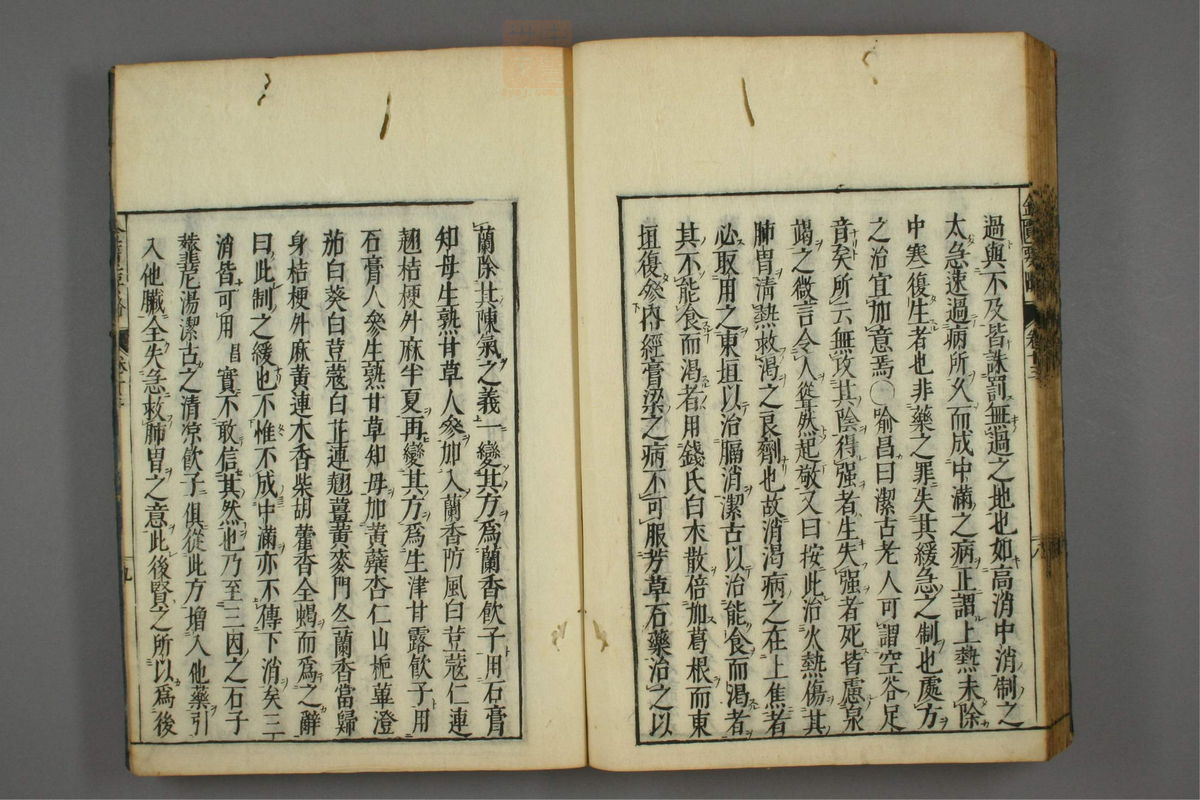 過與不及皆誅罰無過之地也如高消中消制之
太急速過病所久而成中滿之病正謂上熱未除
中寒復生者也非藥之罪失其緩急之制也處方
之治宜加意焉〇喻昌曰潔古老人可謂空谷足
音矣所云無攻其陰得强者生失强者死皆慮泉
竭之微言令人聳然起敬又曰按此治火熱傷其
肺胃清熱救渴之良劑也故消渴病之在上焦者
必取用之東垣以治膈消潔古以治能食而渴者
其不能食而渴者用錢氏白朮散倍加葛根而東
垣復參內經膏粱之病不可服芳草石藥治之以
蘭除其陳氣之義一變其方爲蘭香飲子用石膏
知母生熟甘草人參加入蘭香防風白荳蔻仁連
翹桔梗外麻半夏再變其方爲生津甘露飲子用
石膏人參生熟甘草知母加黃蘗杏仁山梔蓽澄
茄白葵白荳蔻白芷連翹薑黃麥門冬蘭香當歸
身桔梗外麻黃連木香柴胡藿香全蝎而爲之辭
曰此制之緩也不惟不成中滿亦不傳下消矣三
消皆可用昌實不敢信其然也乃至三因之石子
薺苨湯潔古之清凉飲子俱從此方增入他藥引
入他臟全失急救肺胃之意此後賢之所以爲後